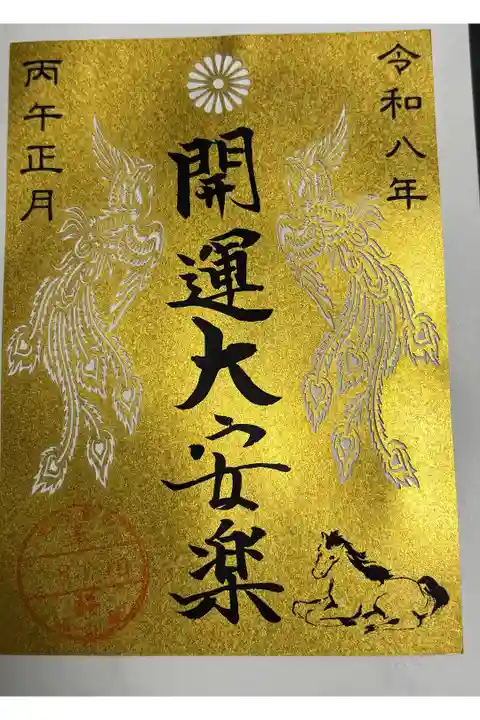 令和八年
開運大安楽
丙午正月